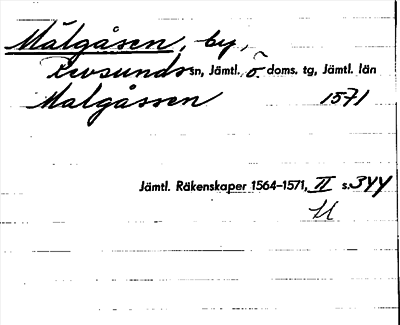 Målgåsen, by,
Revsunds sn, Jämtl. ö. doms. tg, Jämtl. län
Malgåssen 1571
Jämtl. Räkenskaper 1564–1571, II s. 344